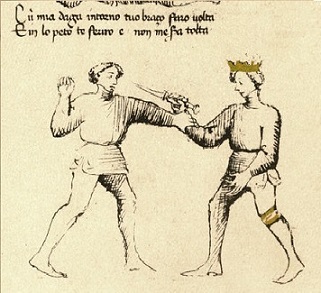 Cū mia daga intorno tuo braço faro volta
E in lo peto te feriro e non me sera tolta